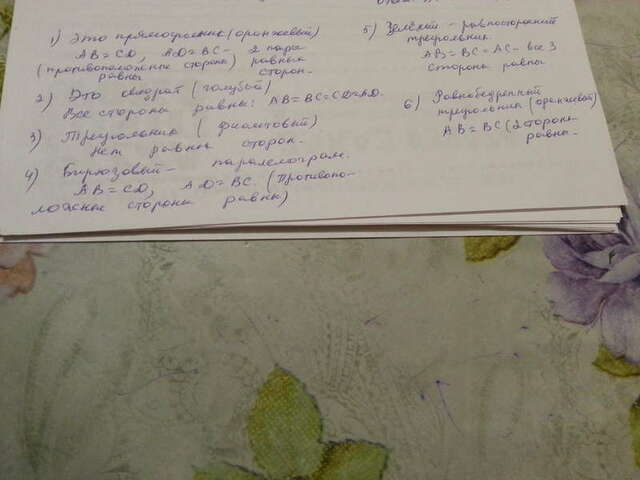 1) Это прямоугольник (оранжевый)
AB = CD, AD = BC - 2 пары
(противоположные стороны) равных
равны сторон.
2) Это квадрат (голубой)
Все стороны равны: AB = BC = CD = AD.
3) Треугольник (фиолетовый)
нет равных сторон.
4) Бирюзовый - паралелограм.
AB = CD, AD = BC. (Противопо-
ложные стороны равны)
5) Зелёный - равносторонний
треугольник
AB = BC = AC - все 3
стороны равны
6) Равнобедренный
треугольник (оранжевый)
AB = BC (2 стороны
равны.